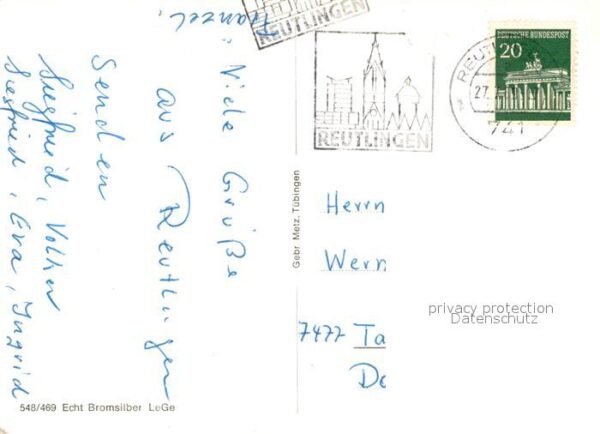 Viele Grüße
aus Reutlingen
senden
Siegfried, Volker
Siegfried, Eva, Ingrid
Franzel.
REUTLINGEN
REUTLINGEN
DEUTSCHE BUNDESPOST
20
27.
741
Gebr Metz, Tübingen
Herrn
Wern
7477 Ta
privacy protection
Datenschutz
548/469 Echt Bromsilber LeGe